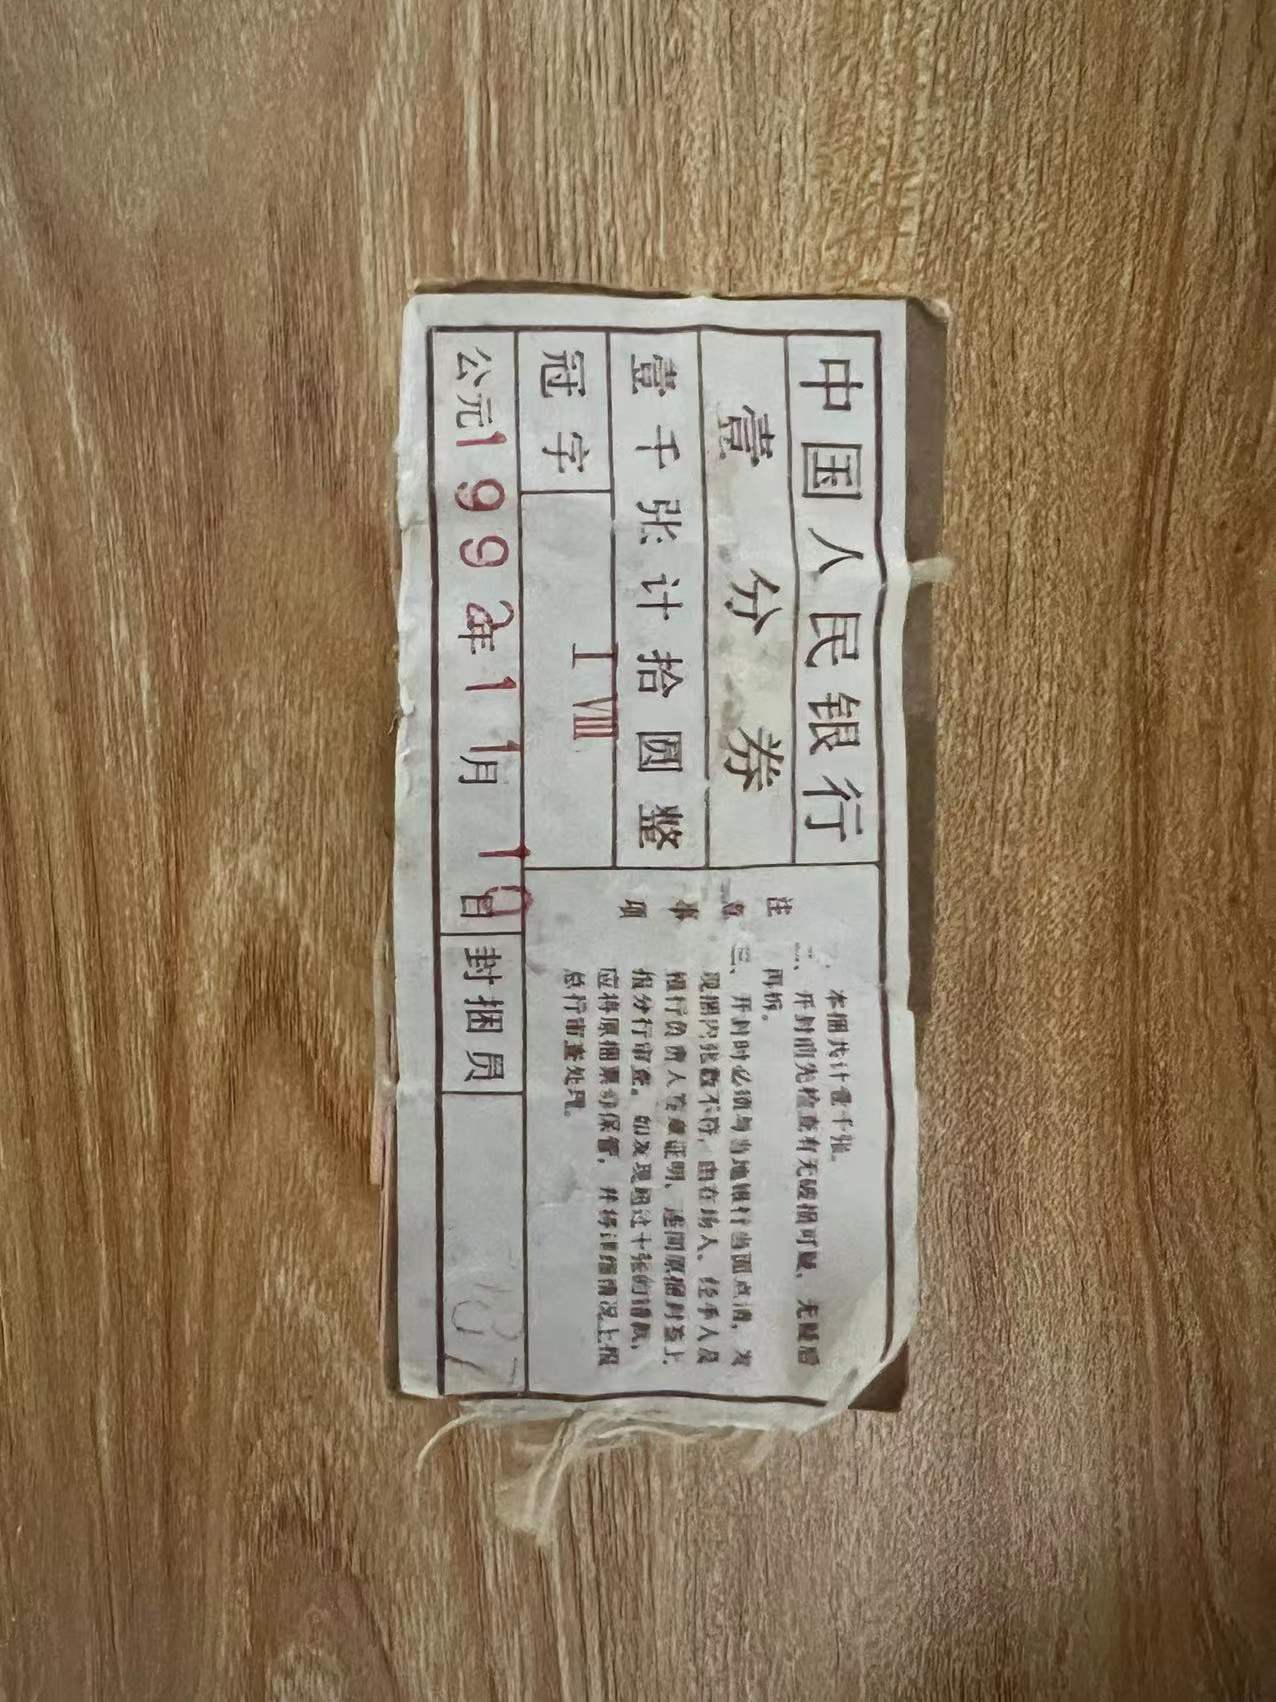 中国人民银行
壹分券
壹千张计拾圆整
冠字 I VIII
公元1992年11月10日 封捆员
注意事项
一、本捆共计壹千张。
二、开封前先检查有无破损可疑，无疑后
再拆。
三、开封时必须与当地银行当面点清，发
现捆内张数不符，由在场人、经手人及
银行负责人签章证明，连同原捆封签上
报分行审查。如发现超过十张的错款，
应将原捆票币保管，并将详细情况上报
总行审查处理。